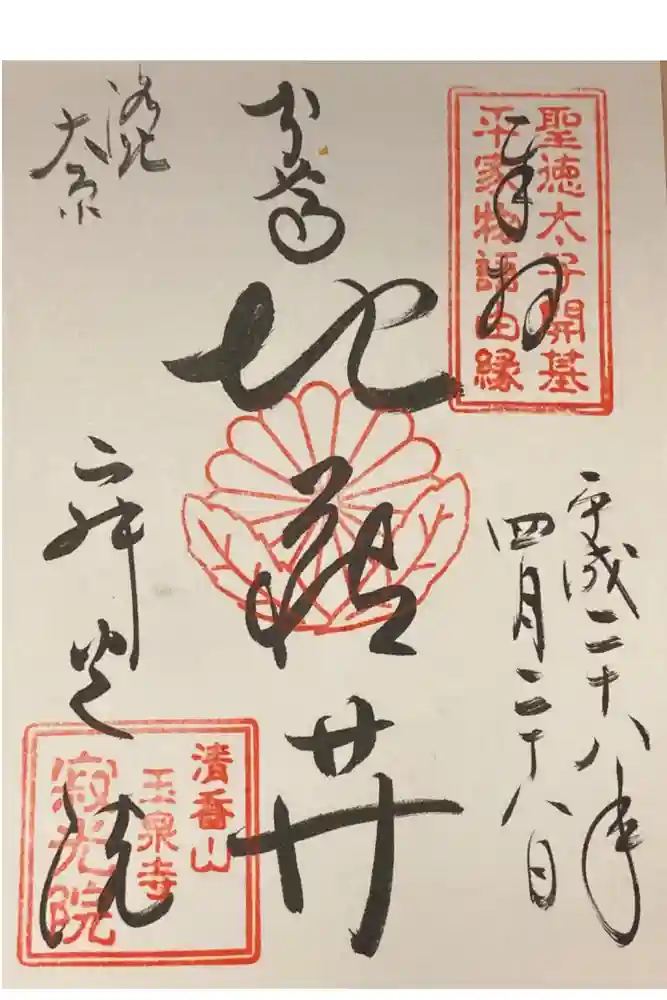 聖徳太子開基
平家物語由縁
奉拝
平成二十八年
四月二十八日
本尊
地蔵𦬇
洛北
大原
寂光院
清香山
玉泉寺
寂光院